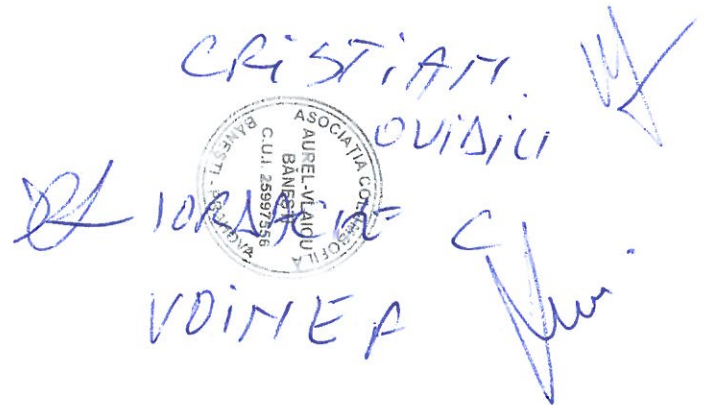 CRiSTiAN.
OVIDIU
IORDACHE
VOINEA
ASOCIAȚIA COLUMBOFILĂ
AUREL-VLAICU
BĂNEȘTI
C.U.I. 25997556
BĂNEȘTI - PRAHOVA